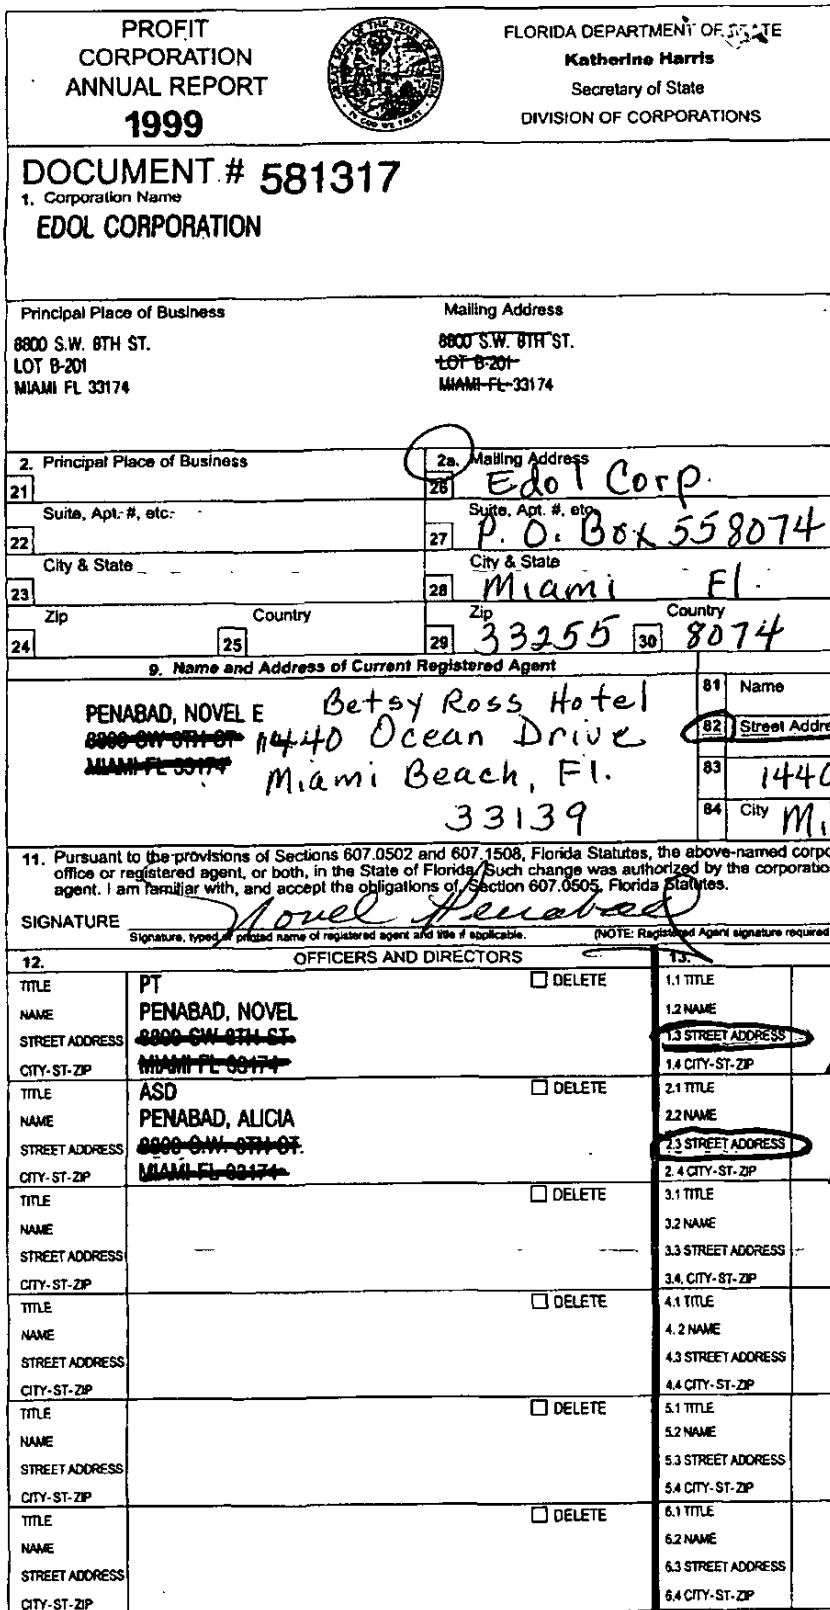 PROFIT
CORPORATION
ANNUAL REPORT
1999
GREAT SEAL OF THE STATE OF FLORIDA
IN GOD WE TRUST
FLORIDA DEPARTMENT OF STATE
Katherine Harris
Secretary of State
DIVISION OF CORPORATIONS
DOCUMENT # 581317
1. Corporation Name
EDOL CORPORATION
Principal Place of Business
8800 S.W. 8TH ST.
LOT B-201
MIAMI FL 33174
Mailing Address
8800 S.W. 8TH ST.
LOT B-201
MIAMI FL 33174
2. Principal Place of Business
21
Suite, Apt. #, etc.
22
City & State
23
Zip
24
Country
25
2a. Mailing Address
26 Edol Corp.
Suite, Apt. #, etc.
27 P. O. Box 558074
City & State
28 Miami Fl.
Zip
29 33255
Country
30 8074
9. Name and Address of Current Registered Agent
PENABAD, NOVEL E
8800 SW 8TH ST
MIAMI FL 33174
Betsy Ross Hotel
1440 Ocean Drive
Miami Beach, Fl.
33139
81 Name
82 Street Addre
83 1440
84 City Mi
11. Pursuant to the provisions of Sections 607.0502 and 607.1508, Florida Statutes, the above-named corpo
office or registered agent, or both, in the State of Florida. Such change was authorized by the corporatio
agent. I am familiar with, and accept the obligations of, Section 607.0505, Florida Statutes.
SIGNATURE Novel Penabad
Signature, typed or printed name of registered agent and title if applicable. (NOTE: Registered Agent signature required
12. OFFICERS AND DIRECTORS
13.
TITLE PT DELETE
NAME PENABAD, NOVEL
STREET ADDRESS 8800 SW 8TH ST
CITY-ST-ZIP MIAMI FL 33174
1.1 TITLE
1.2 NAME
1.3 STREET ADDRESS
1.4 CITY-ST-ZIP
TITLE ASD DELETE
NAME PENABAD, ALICIA
STREET ADDRESS 8800 S.W. 8TH ST.
CITY-ST-ZIP MIAMI FL 33174
2.1 TITLE
2.2 NAME
2.3 STREET ADDRESS
2.4 CITY-ST-ZIP
TITLE DELETE
NAME
STREET ADDRESS
CITY-ST-ZIP
3.1 TITLE
3.2 NAME
3.3 STREET ADDRESS
3.4. CITY-ST-ZIP
TITLE DELETE
NAME
STREET ADDRESS
CITY-ST-ZIP
4.1 TITLE
4.2 NAME
4.3 STREET ADDRESS
4.4 CITY-ST-ZIP
TITLE DELETE
NAME
STREET ADDRESS
CITY-ST-ZIP
5.1 TITLE
5.2 NAME
5.3 STREET ADDRESS
5.4 CITY-ST-ZIP
TITLE DELETE
NAME
STREET ADDRESS
CITY-ST-ZIP
6.1 TITLE
6.2 NAME
6.3 STREET ADDRESS
6.4 CITY-ST-ZIP